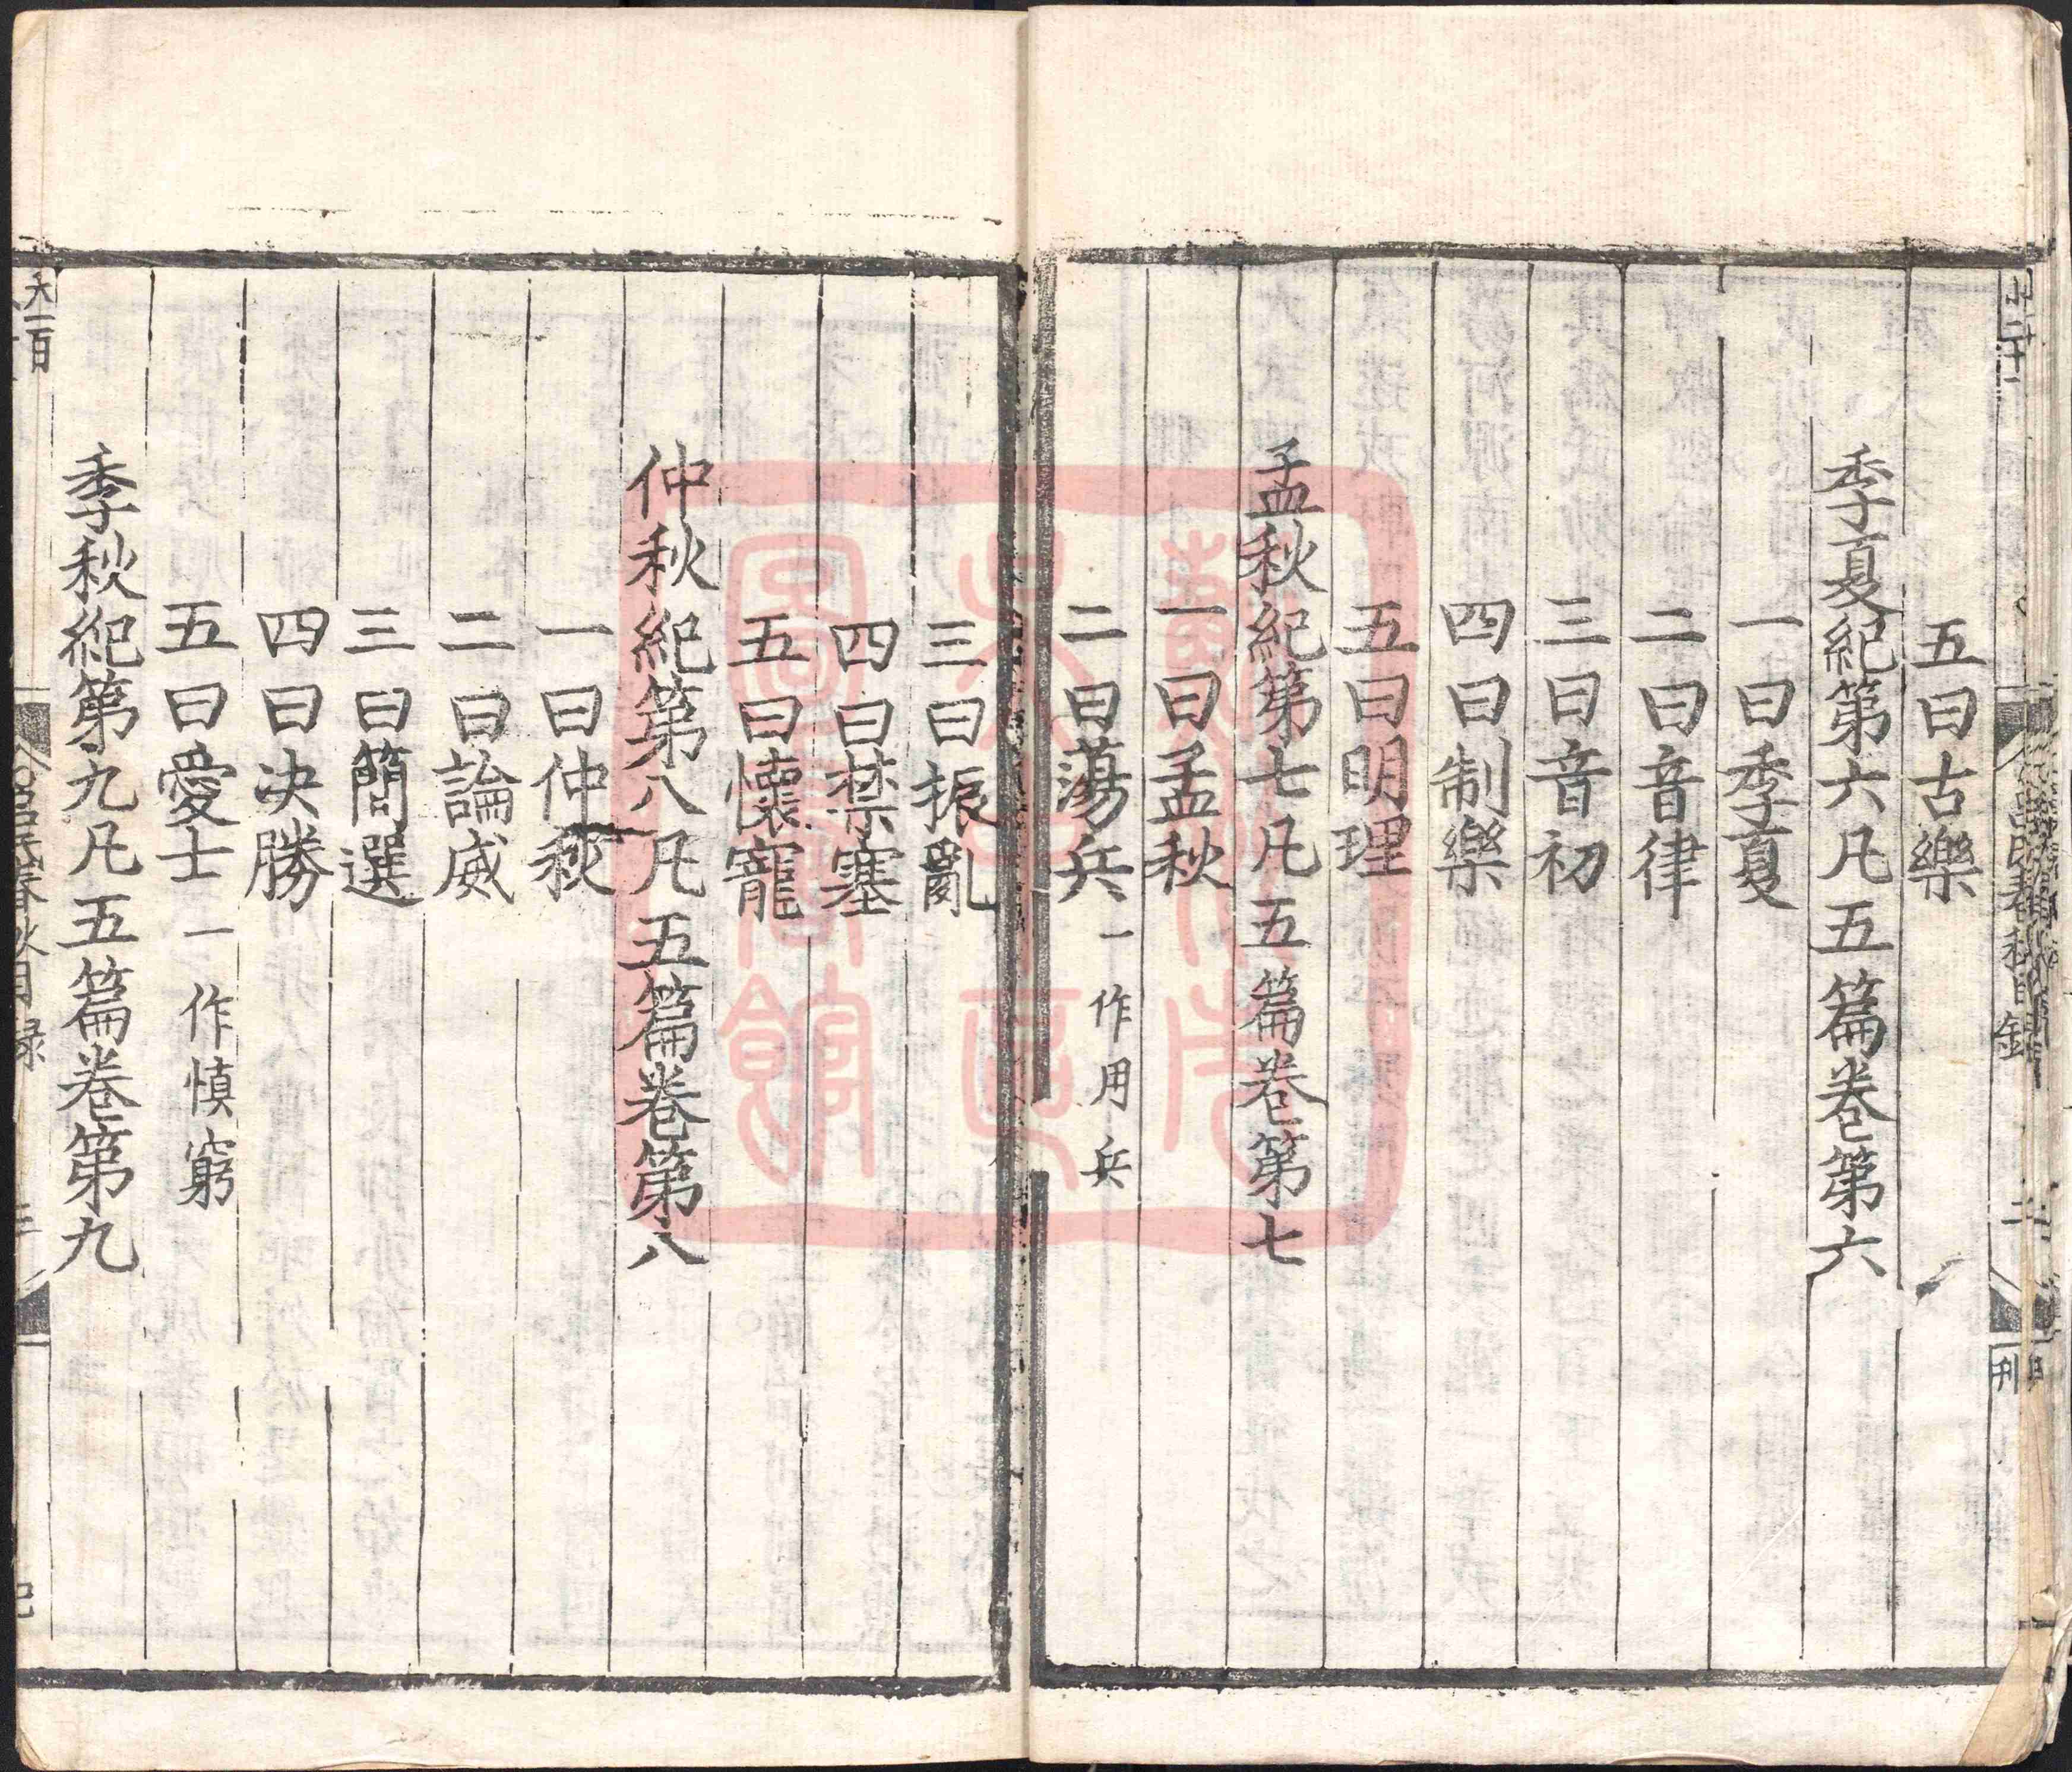 五曰古樂
季夏紀第六凡五篇卷第六
一曰季夏
二曰音律
三曰音初
四曰制樂
五曰明理
孟秋紀第七凡五篇卷第七
一曰孟秋
二曰蕩兵一作用兵
三曰振亂
四曰禁塞
五曰懐寵
仲秋紀第八凡五篇卷第八
一曰仲秋
二曰論威
三曰簡選
四曰決勝
五曰愛士一作慎窮
季秋紀第九凡五篇卷第九